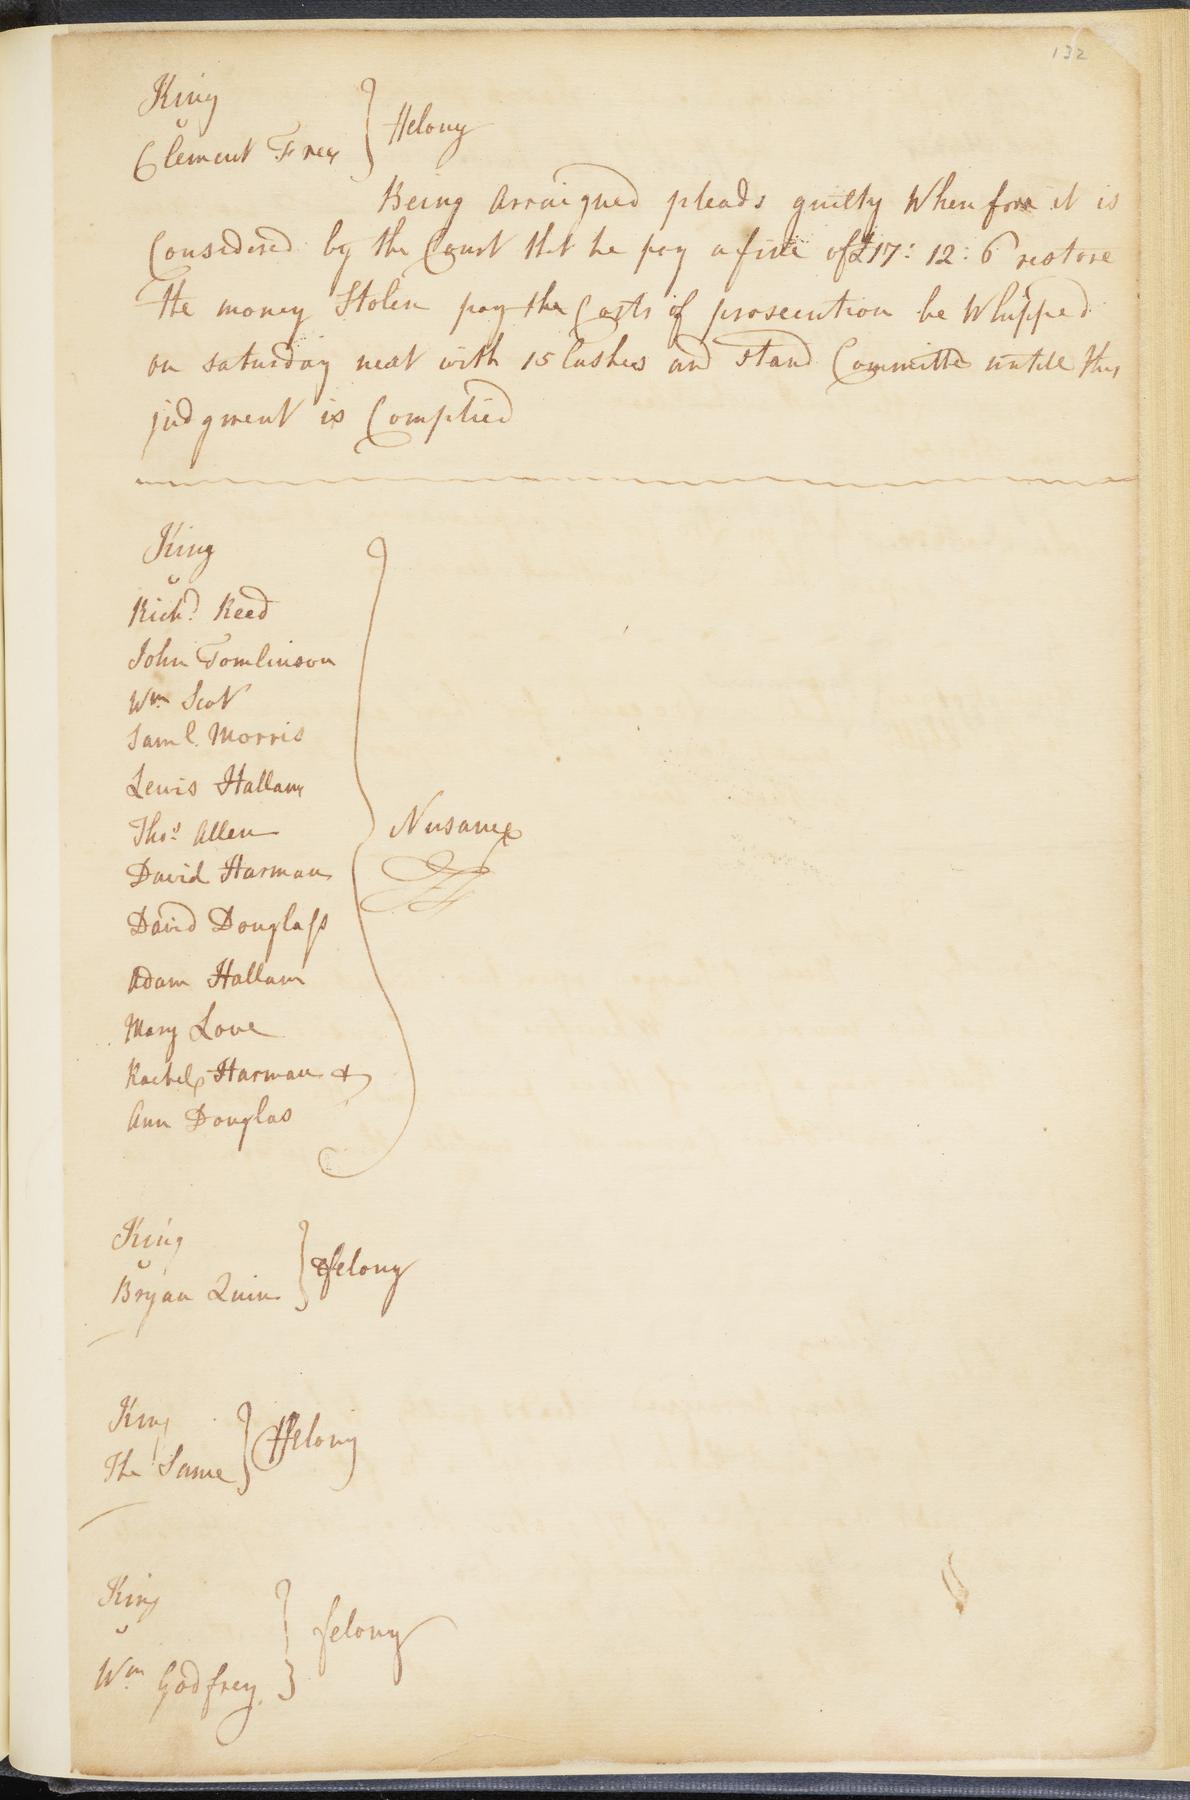 132
King
v
Clement Free } Felony
Being Arraigned pleads guilty Wherefore it is
Considered by the Court tht he pay a fine of £17: 12: 6 restore
the money Stolen pay the Costs of prosecution be Whipped
on saturday next with 15 lashes and stand Committed untill this
judgment is Complied
King
v
Richd. Reed
John Tomlinson
Wm Scot
Saml. Morris
Lewis Hallam
Thos. Allen
David Harman
David Douglass
Adam Hallam
Mary Love
Rachel Harman &
Ann Douglas
} Nusance
King
v
Bryan Quin } felony
King
v
The Same } Felony
King
v
Wm Godfrey } felony